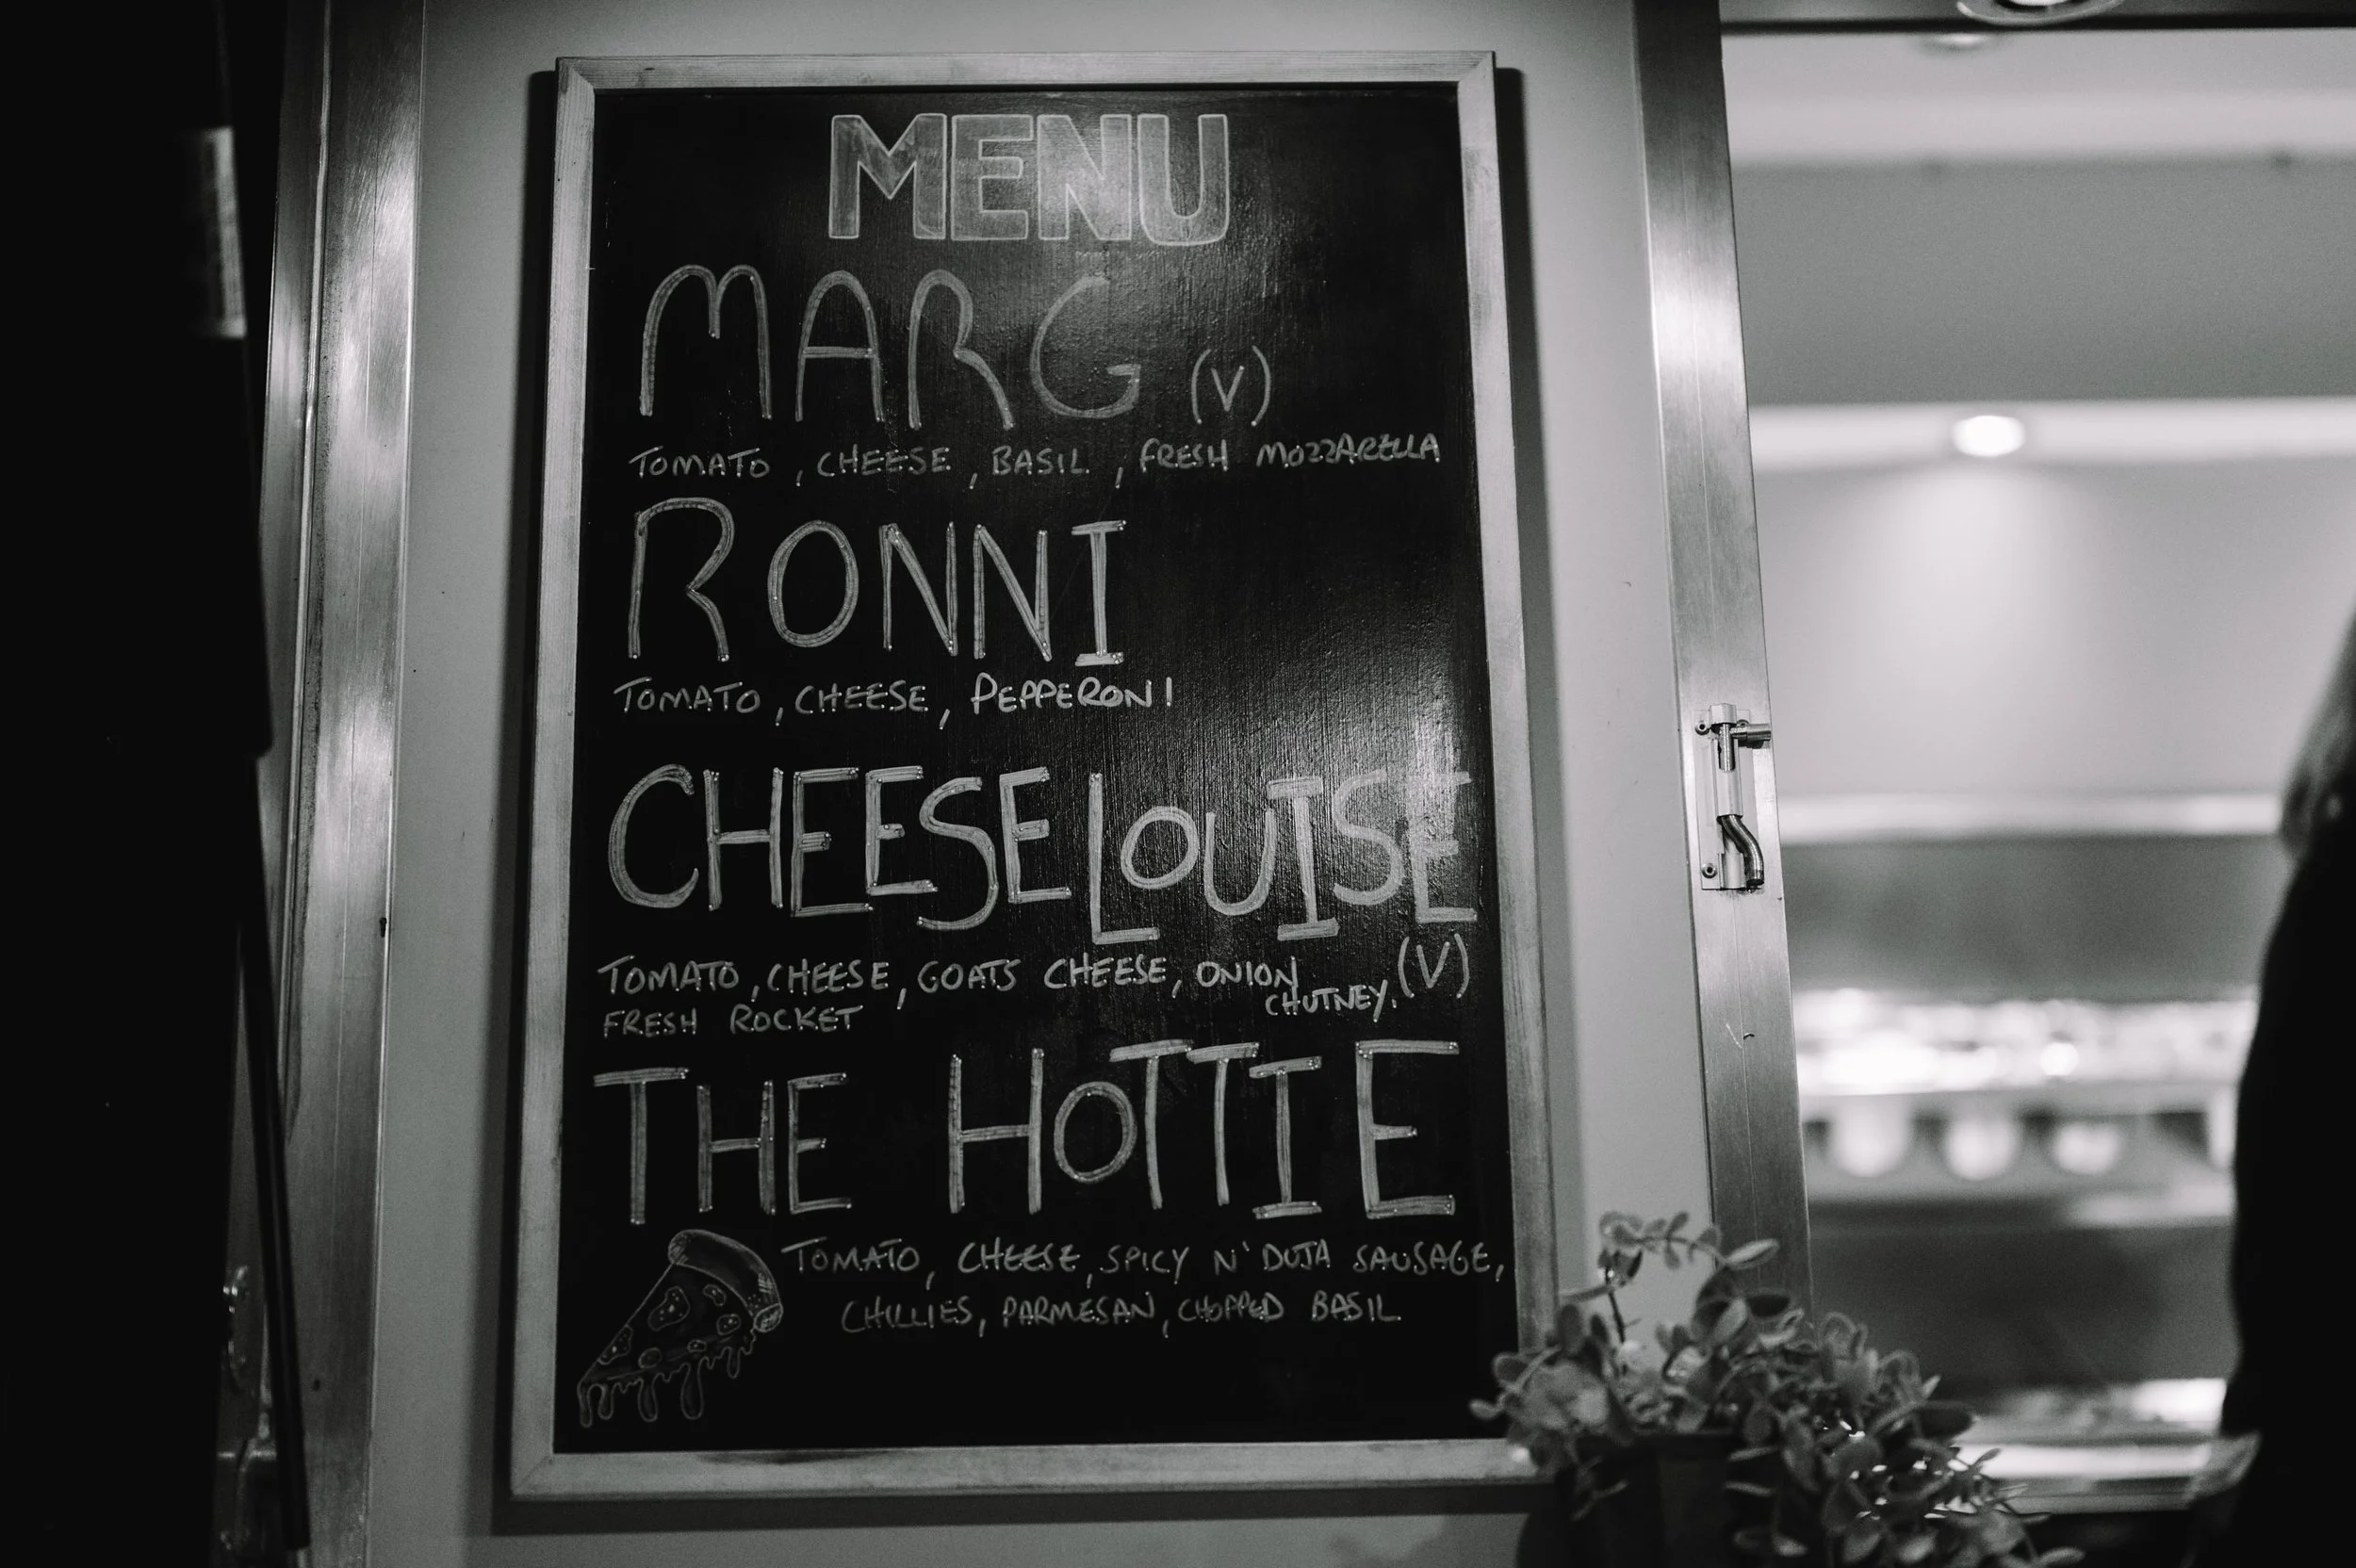 MENU
MARG (V)
TOMATO, CHEESE, BASIL, FRESH MOZZARELLA
RONNI
TOMATO, CHEESE, PEPPERONI
CHEESE LOUISE
TOMATO, CHEESE, GOATS CHEESE, ONION
CHUTNEY. (V)
FRESH ROCKET
THE HOTTIE
TOMATO, CHEESE, SPICY N'DUJA SAUSAGE,
CHILLIES, PARMESAN, CHOPPED BASIL